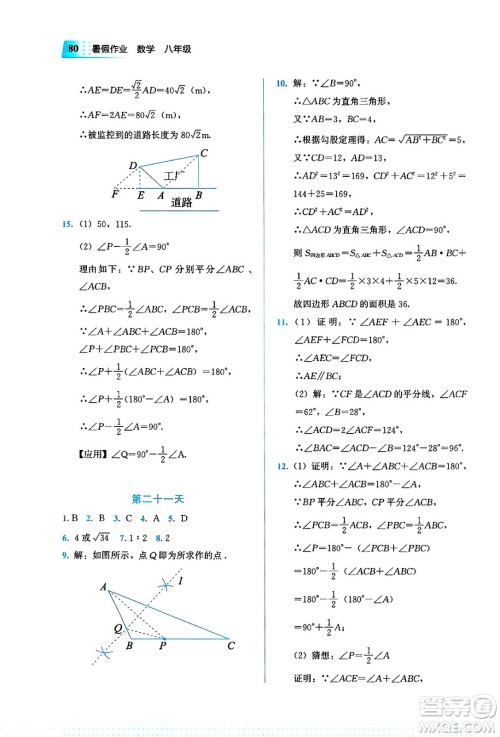 80 暑假作业 数学 八年级
∴AE=DE=AD=40√2 (m),
∴AF=2AE=80√2 (m),
∴被监控到的道路长度为80√2 m.
D C 工厂
F E A B
道路
15. (1) 50, 115.
(2) ∠P-1/2∠A=90°
理由如下：∵BP、CP分别平分∠ABC、∠ACB,
∴∠PBC=1/2∠ABC, ∠PCB=1/2∠ACB,
∴∠P+∠PBC+∠PCB=180°,
∴∠P+1/2(∠ABC+∠ACB)=180°,
∴∠P+1/2(180°-∠A)=180°,
∴∠P-1/2∠A=90°.
【应用】∠Q=90°-1/2∠A.
第二十一天
1. B 2. B 3. A 4. A 5. D
6. 4或√34 7. 1∶2 8. 10
9. 解：如图所示，点Q即为所求作的点.
A Q B P C
10. 解：∵∠B=90°,
∴△ABC为直角三角形,
又∵AB=3, BC=4,
∴根据勾股定理得：AC=√(AB²+BC²)=5,
又∵CD=12, AD=13,
∴AD²=13²=169, CD²+AC²=12²+5²=
144+25=169,
∴CD²+AC²=AD²,
∴△ACD为直角三角形, ∠ACD=90°,
则S四边形ABCD=S△ABC+S△ACD=1/2AB·BC+
1/2AC·CD=1/2×3×4+1/2×5×12=36.
故四边形ABCD的面积是36.
11. (1) 证明：∵∠AEF+∠AEC=180°,
∠AEF+∠FCD=180°,
∴∠AEC=∠FCD,
∴AE∥BC;
(2) 解：∵CF是∠ACD的平分线, ∠FCD
=62°, ∠B=28°,
∴∠ACD=2∠FCD=124°,
∴∠BAC=∠ACD-∠B=124°-28°=96°.
12. (1) 证明：∵∠A+∠ABC+∠ACB=180°,
∴∠ABC+∠ACB=180°-∠A,
∵BP平分∠ABC, CP平分∠ACB,
∴∠PBC=1/2∠ABC, ∠PCB=1/2∠ACB,
∴∠BPC=180°-(∠PBC+∠PCB)
=180°-(1/2∠ABC+1/2∠ACB)
=180°-1/2(∠ABC+∠ACB)
=180°-1/2(180°-∠A)
=90°+1/2∠A;
(2) 猜想：∠BPC=90°-1/2∠A.
证明：∵∠ACE+∠ACB=180°, ∠ABC+